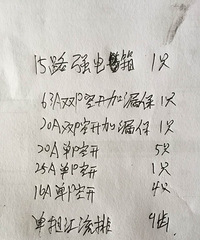 15路强电箱 1只
63A双P空开加漏保 1只
20A双P空开加漏保 1只
20A单P空开 5只
25A单P空开 1只
16A单P空开 4只
单相汇流排 9齿